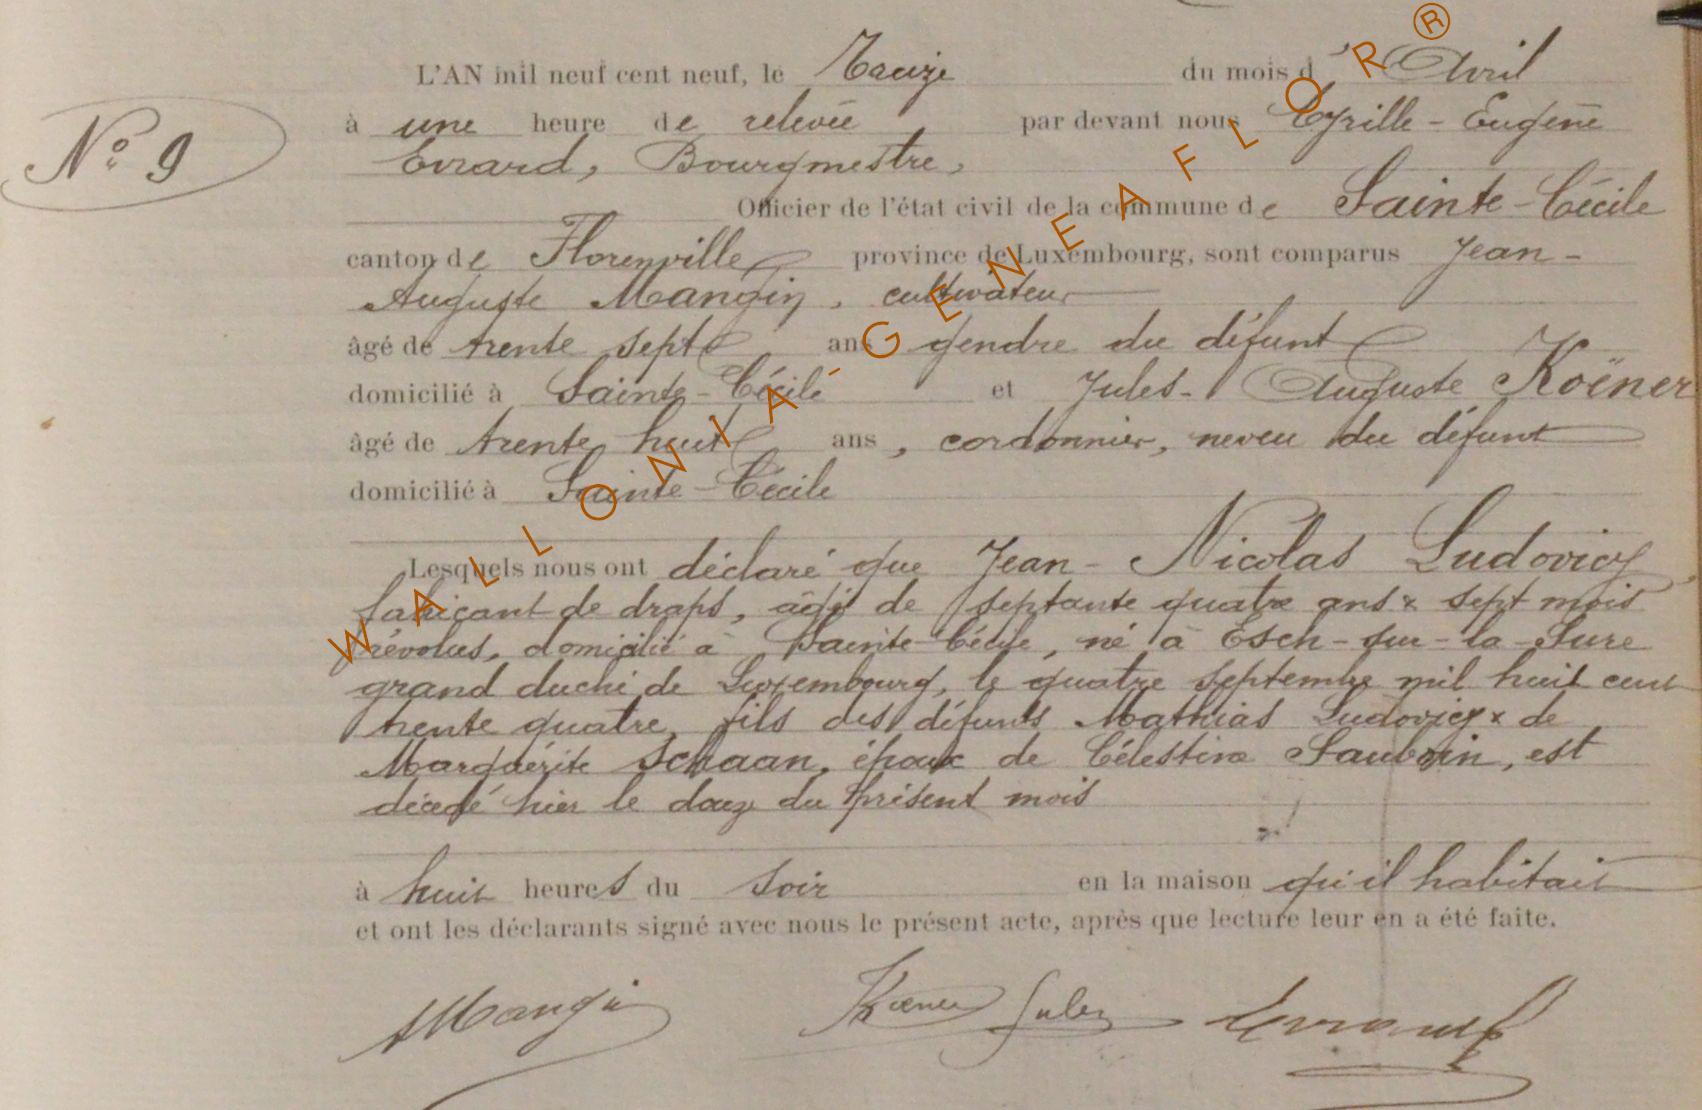 L'AN mil neuf cent neuf, le Treize du mois d' Avril
à une heure de relevée par devant nous Cyrille-Eugène
Nº 9
Evrard, Bourgmestre,
Officier de l'état civil de la commune de Sainte-Cécile
canton de Florenville province de Luxembourg, sont comparus Jean-
Auguste Mangin, cultivateur
âgé de trente sept ans gendre du défunt
domicilié à Sainte-Cécile et Jules-Auguste Koëner
âgé de trente huit ans, cordonnier, neveu du défunt
domicilié à Sainte-Cécile
Lesquels nous ont déclaré que Jean-Nicolas Ludovicy
fabricant de draps, âgé de septante quatre ans & sept mois
révolus, domicilié à Sainte-Cécile, né à Esch-sur-la-Sure
grand duché de Luxembourg, le quatre septembre mil huit cent
trente quatre, fils des défunts Mathias Ludovicy & de
Marguérite Schaan, époux de Célestine Saubrin, est
décédé hier le douze du présent mois
à huit heures du soir en la maison qu'il habitait
et ont les déclarants signé avec nous le présent acte, après que lecture leur en a été faite.
AMangin Koener Jules Evrard
WALLONIA-GENEAFLOR®